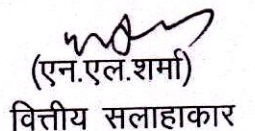 (एन.एल.शर्मा)
वित्तीय सलाहाकार